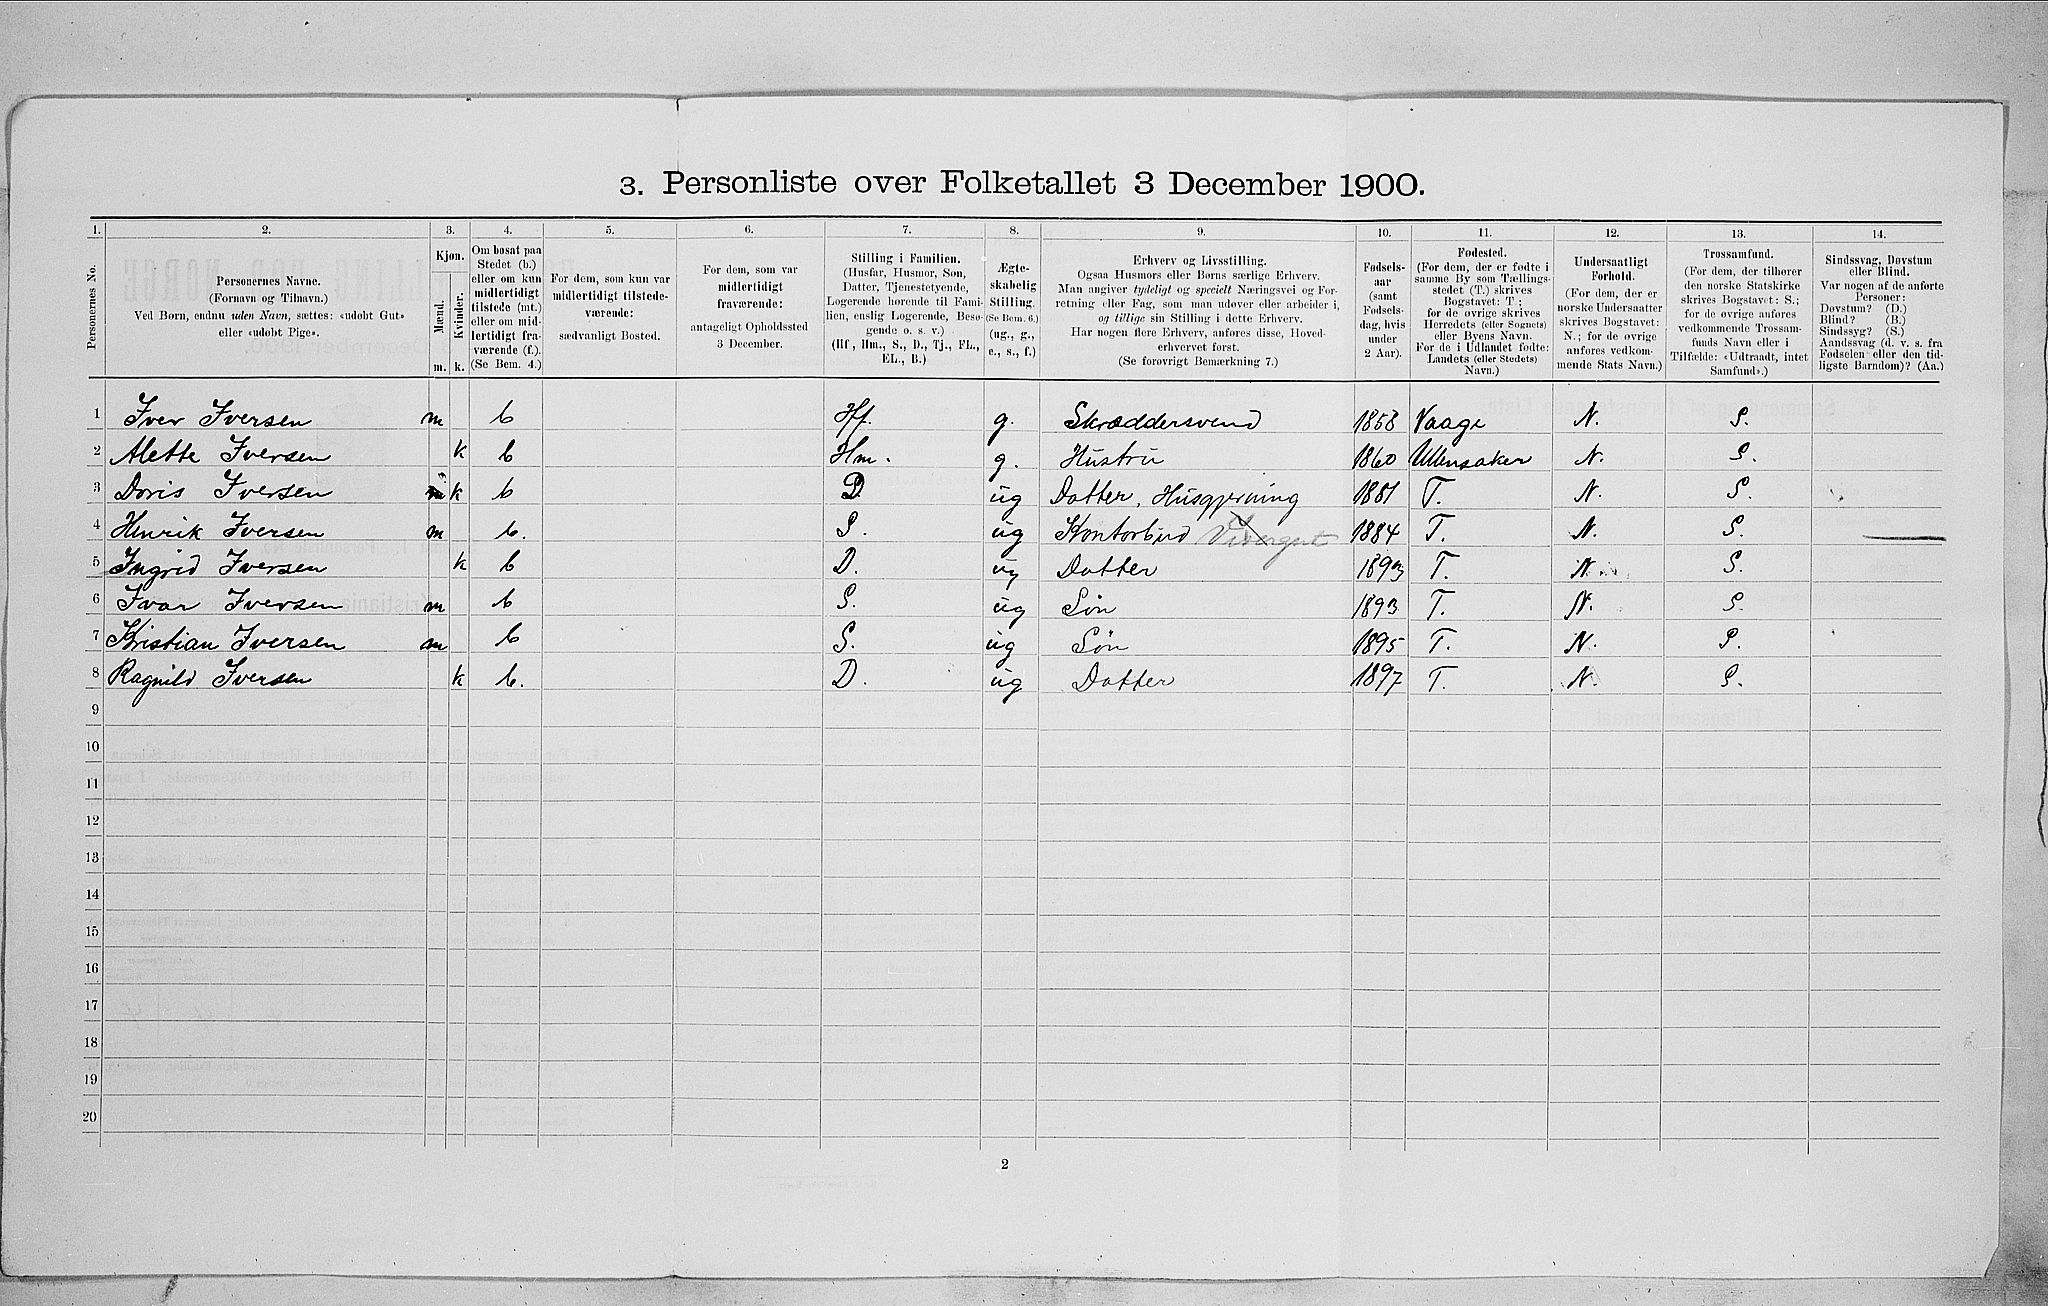 3. Personliste over Folketallet 3 December 1900.
1. 2. 3. 4. 5. 6. 7. 8. 9. 10. 11. 12. 13. 14.
Personernes No.
Personernes Navne.
(Fornavn og Tilnavn.)
Ved Børn, endnu uden Navn, sættes: «udøbt Gut»
eller «udøbt Pige».
Kjøn.
Mænd.
Kvinder.
m. k.
Om bosat paa
Stedet (b.)
eller om kun
midlertidigt
tilstede (mt.)
eller om mid-
lertidigt fra-
værende (f.).
(Se Bem. 4.)
For dem, som kun var
midlertidigt tilstede-
værende:
sædvanligt Bosted.
For dem, som var
midlertidigt
fraværende:
antageligt Opholdssted
3 December.
Stilling i Familien.
(Husfar, Husmor, Søn,
Datter, Tjenestetyende,
Logerende hørende til Fami-
lien, enslig Logerende, Besø-
gende o. s. v.)
(Hf., Hm., S., D., Tj., FL.,
EL., B.)
Ægte-
skabelig
Stilling.
(Se Bem. 6.)
(ug., g.,
e., s., f.)
Erhverv og Livsstilling.
Ogsaa Husmors eller Børns særlige Erhverv.
Man angiver tydeligt og specielt Næringsvei og For-
retning eller Fag, som man udøver eller arbeider i,
og tillige sin Stilling i dette Erhverv.
Har nogen flere Erhverv, anføres disse, Hoved-
erhvervet først.
(Se forøvrigt Bemærkning 7.)
Fødsels-
aar
(samt
Fødsels-
dag, hvis
under
2 Aar).
Fødested.
(For dem, der er fødte i
samme By som Tællings-
stedet (T.) skrives
Bogstavet: T;
for de øvrige skrives
Herredets (eller Sognets)
eller Byens Navn.
For de i Udlandet fødte:
Landets (eller Stedets)
Navn.)
Undersaatligt
Forhold.
(For dem, der er
norske Undersaatter
skrives Bogstavet:
N.; for de øvrige
anføres vedkom-
mende Stats Navn.)
Trossamfund.
(For dem, der tilhører
den norske Statskirke
skrives Bogstavet: S.;
for de øvrige anføres
vedkommende Trossam-
funds Navn eller i
Tilfælde: «Udtraadt, intet
Samfund».)
Sindssvag, Døvstum
eller Blind.
Var nogen af de anførte
Personer:
Døvstum? (D.)
Blind? (B.)
Sindssyg? (S.)
Aandssvag (d. v. s. fra
Fødselen eller den tid-
ligste Barndom)? (Aa.)
1 Iver Iversen m b Hf. g. Skræddersvend 1858 Vaage N. S.
2 Alette Iversen k b Hm. g. Hustru 1860 Ullensaker N. S.
3 Doris Iversen m k b D. ug Datter, Husgjerning 1881 T. N. S.
4 Henrik Iversen m b. S. ug Kontorbud Visergut 1884 T. N. S.
5 Ingrid Iversen k b D. ug Datter 1893 T. N. S.
6 Ivar Iversen m b S. ug Søn 1893 T. N. S.
7 Kristian Iversen m b S. ug Søn 1895 T. N. S.
8 Ragnild Iversen k b. D. ug Datter 1897 T. N. S.
9
10
11
12
13
14
15
16
17
18
19
20
2